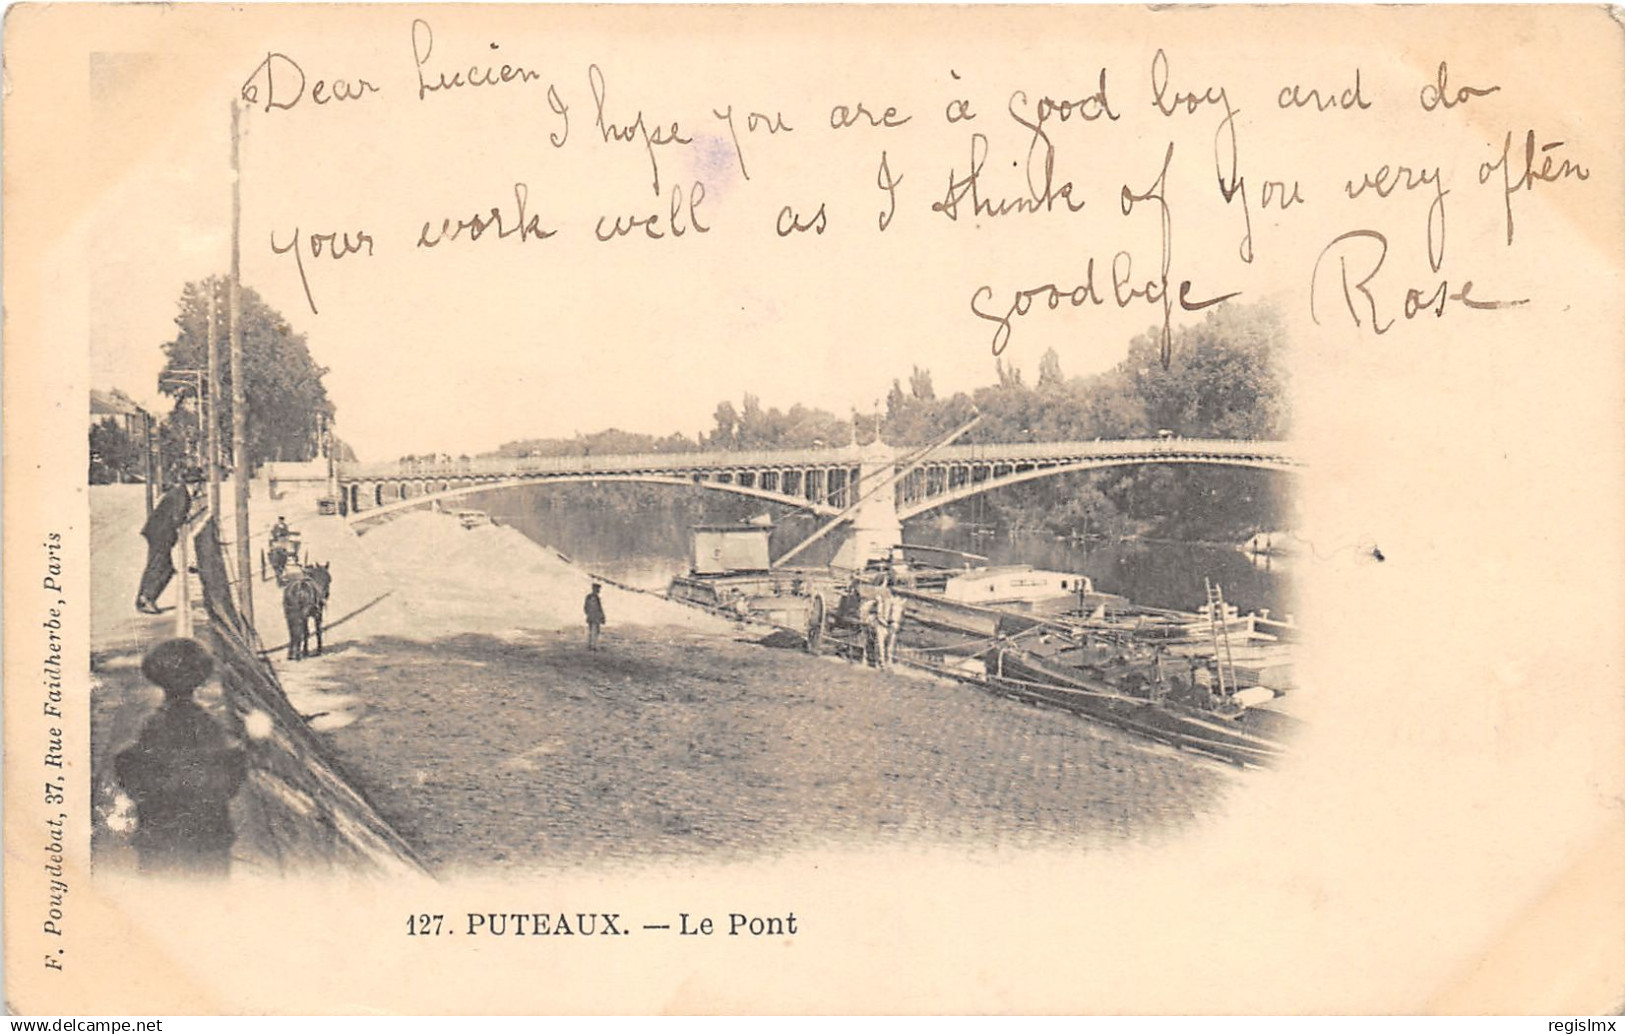 Dear Lucien
I hope you are à good boy and do
your work well as I think of you very often
goodbye Rose
F. Pouydebat, 37, Rue Faidherbe, Paris
127. PUTEAUX. — Le Pont
www.delcampe.net
regislmx